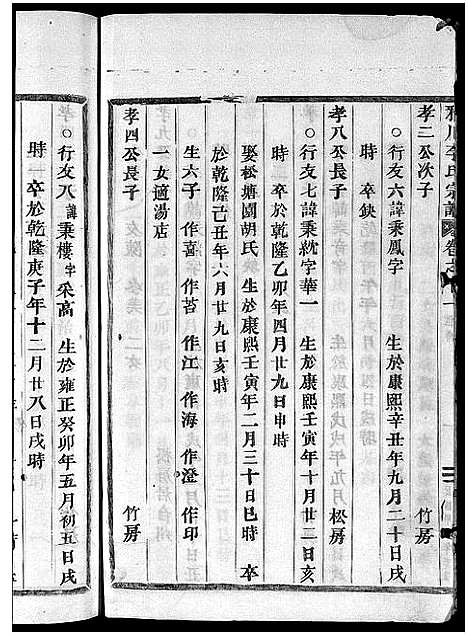 川李氏宗譜 卷之
孝二公次子 竹房
○行友六諱秉鳳字 生於康熙辛丑年九月二十日戌
時 卒缺
孝八公長子 松房
○行友七諱秉忱字華一 生於康熙壬寅年十月廿二日亥
時 卒於乾隆乙卯年四月廿九日申時
娶松塘園胡氏 生於康熙壬寅年二月三十日巳時 卒
於乾隆己丑年六月廿九日亥時
生六子 作喜 作苔 作江 作海 作澄 作印
一女適湯店
孝四公長子 竹房
○行友八諱秉樓字采高 生於雍正癸卯年五月初五日戌
時 卒於乾隆庚子年十二月廿八日戌時